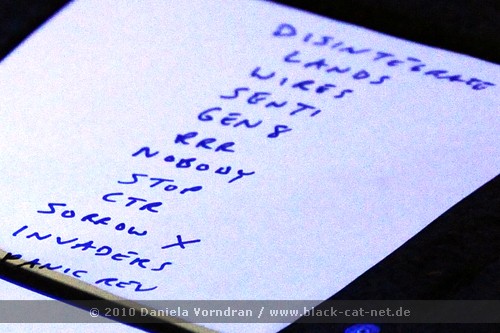 DISINTEGRATE
LANDS
WIRES
SENTI
GEN 8
RRR
NOBODY
STOP
CTR
SORROW X
INVADERS
PANIC REV
© 2010 Daniela Vorndran / www.black-cat-net.de